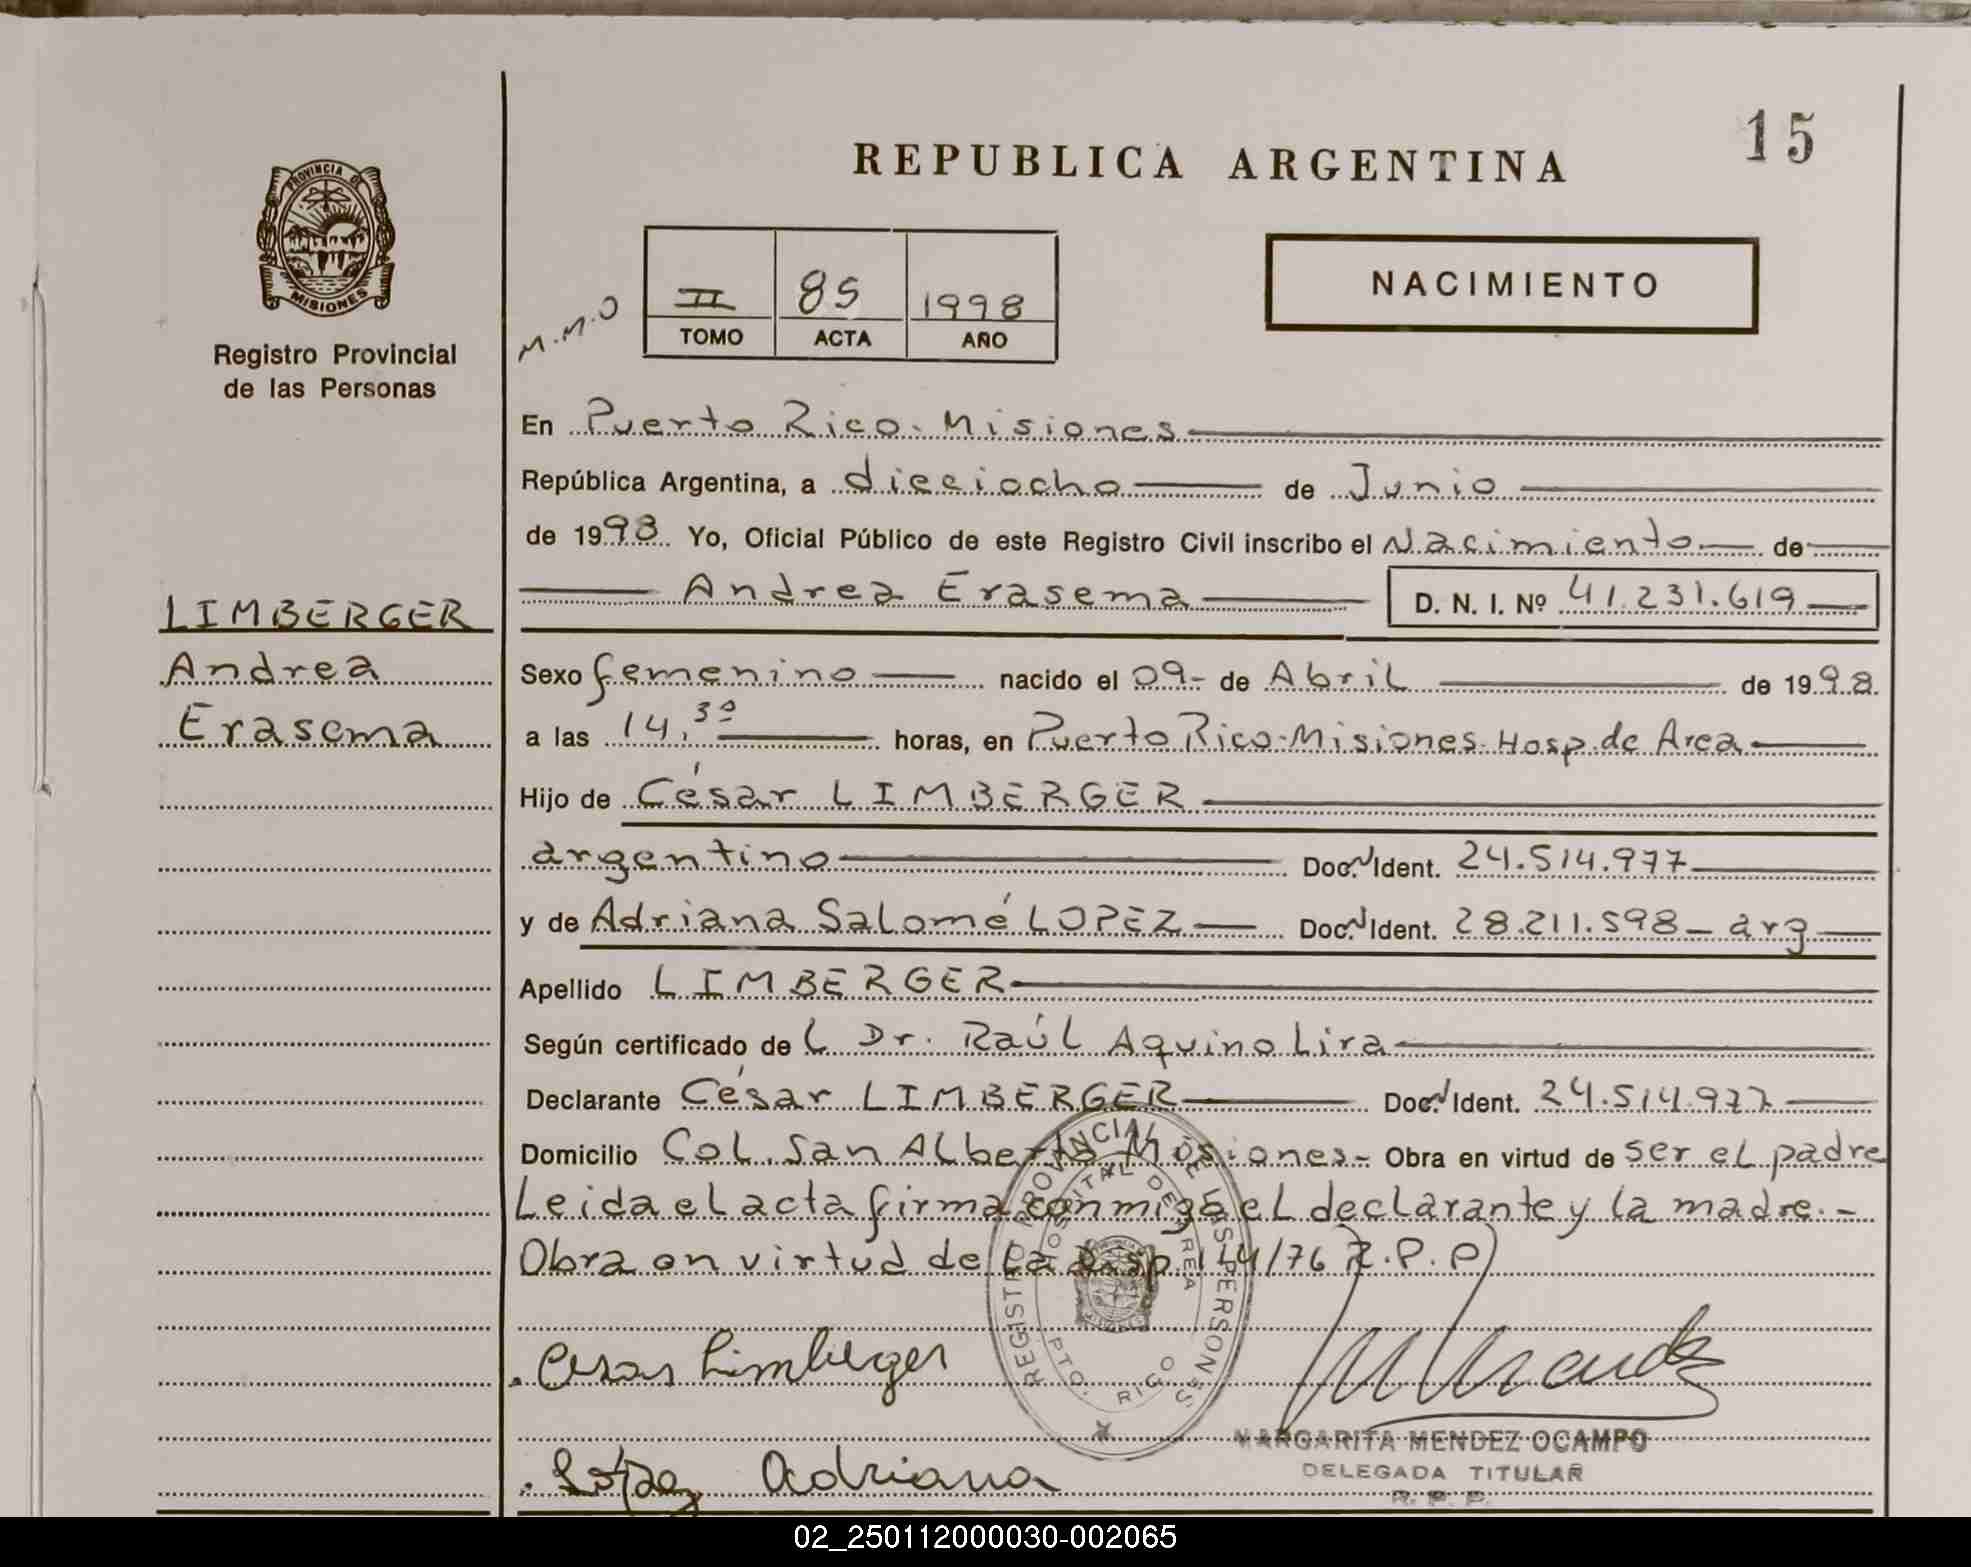 15
REPUBLICA ARGENTINA
PROVINCIA DE
MISIONES
Registro Provincial
de las Personas
M.M.O
II 85 1998
TOMO ACTA AÑO
NACIMIENTO
En Puerto Rico. Misiones
República Argentina, a dieciocho de Junio
de 1998. Yo, Oficial Público de este Registro Civil inscribo el Nacimiento de
Andrea Erasema D. N. I. Nº 41.231.619
LIMBERGER
Andrea
Erasema
Sexo femenino nacido el 09- de Abril de 1998.
a las 14,30 horas, en Puerto Rico-Misiones-Hosp. de Area
Hijo de César LIMBERGER
argentino Doc. N Ident. 24.514.977
y de Adriana Salomé LOPEZ Doc. N Ident. 28.211.598 - arg
Apellido LIMBERGER
Según certificado de L Dr. Raúl Aquino Lira
Declarante César LIMBERGER Doc. N Ident. 24.514.977
Domicilio Col. San Alberto Misiones- Obra en virtud de ser el padre
Leida el acta firma conmigo el declarante y la madre.-
Obra en virtud de la Disp. 144/76 R.P.P
REGISTRO PROVINCIAL DE LAS PERSONAS
HOSPITAL DE AREA
PTO. RICO
Cesar Limberger
MARGARITA MENDEZ OCAMPO
DELEGADA TITULAR
R. P. P.
López Adriana
02_250112000030-002065